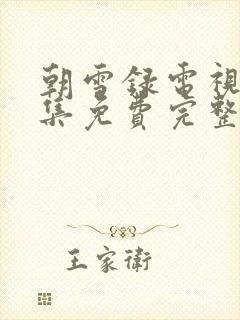 朝雪録電視
集免費完整
王家衛